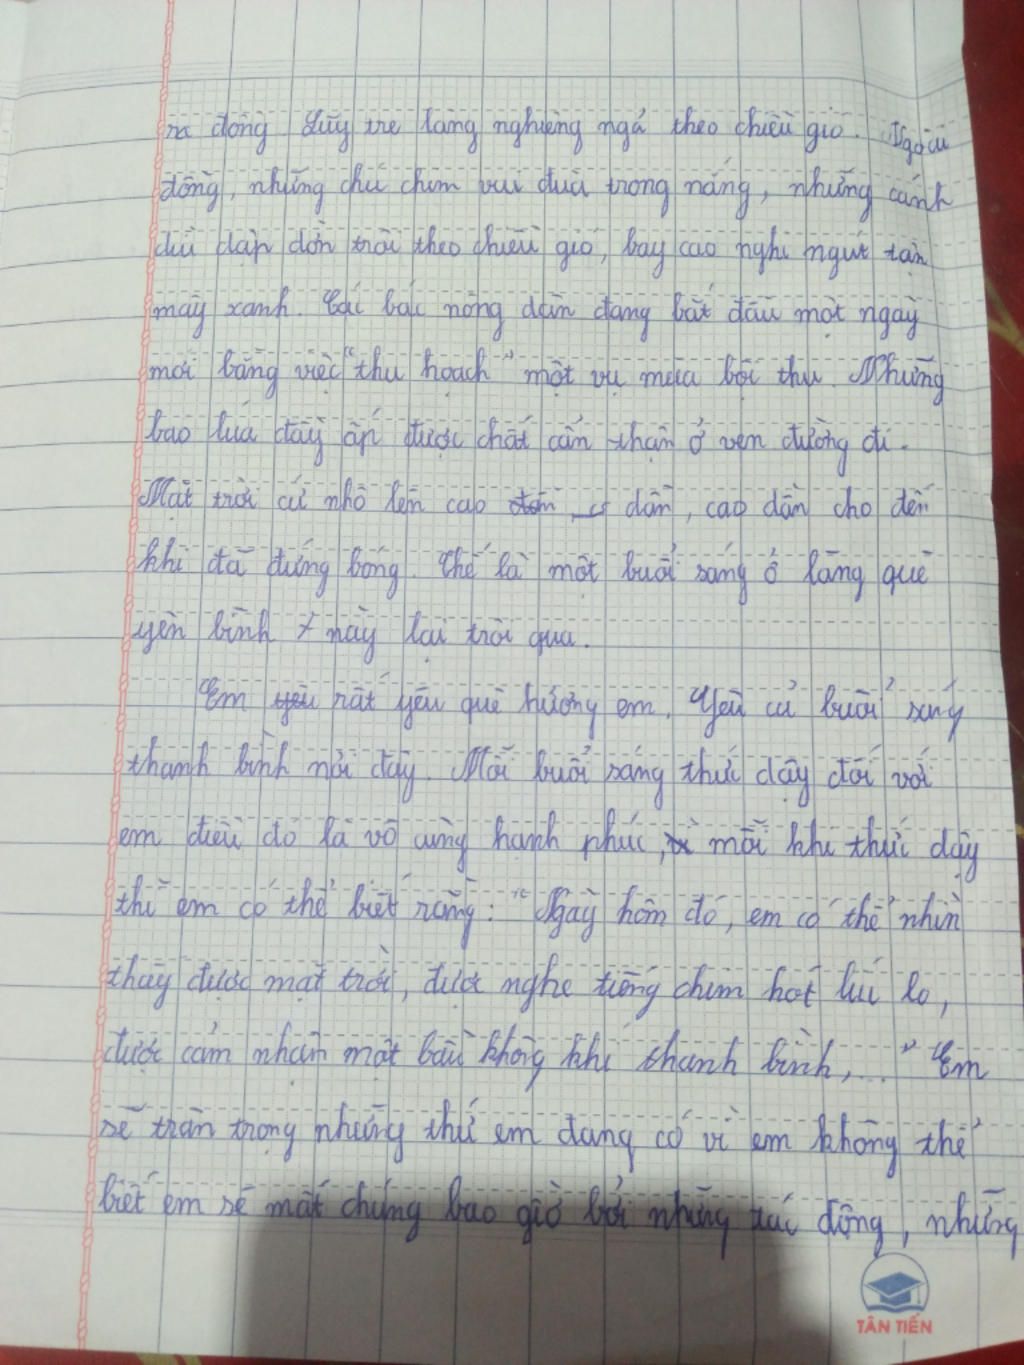 ra đồng. Lũy tre làng nghiêng ngả theo chiều gió. Ngoài
đồng, những chú chim vui đùa trong nắng, những cánh
diều dập dờn trôi theo chiều gió, bay cao nghi ngút tận
mây xanh. Các bác nông dân đang bắt đầu một ngày
mới bằng việc "thu hoạch" một vụ mùa bội thu. Những
bao lúa đầy ắp được chất cẩn thận ở ven đường đi.
Mặt trời cứ nhô lên cao dần, cao dần cho đến
khi đã đứng bóng. Thế là một buổi sáng ở làng quê
yên bình này lại trôi qua.
Em rất yêu quê hương em. Yêu cả buổi sáng
thanh bình nơi đây. Mỗi buổi sáng thức dậy đối với
em điều đó là vô cùng hạnh phúc, vì mỗi khi thức dậy
thì em có thể biết rằng: "Ngày hôm đó, em có thể nhìn
thấy được mặt trời, được nghe tiếng chim hót líu lo,
được cảm nhận một bầu không khí thanh bình,..." Em
sẽ trân trọng những thứ em đang có vì em không thể
biết em sẽ mất chúng bao giờ bởi những tác động, những
TÂN TIẾN